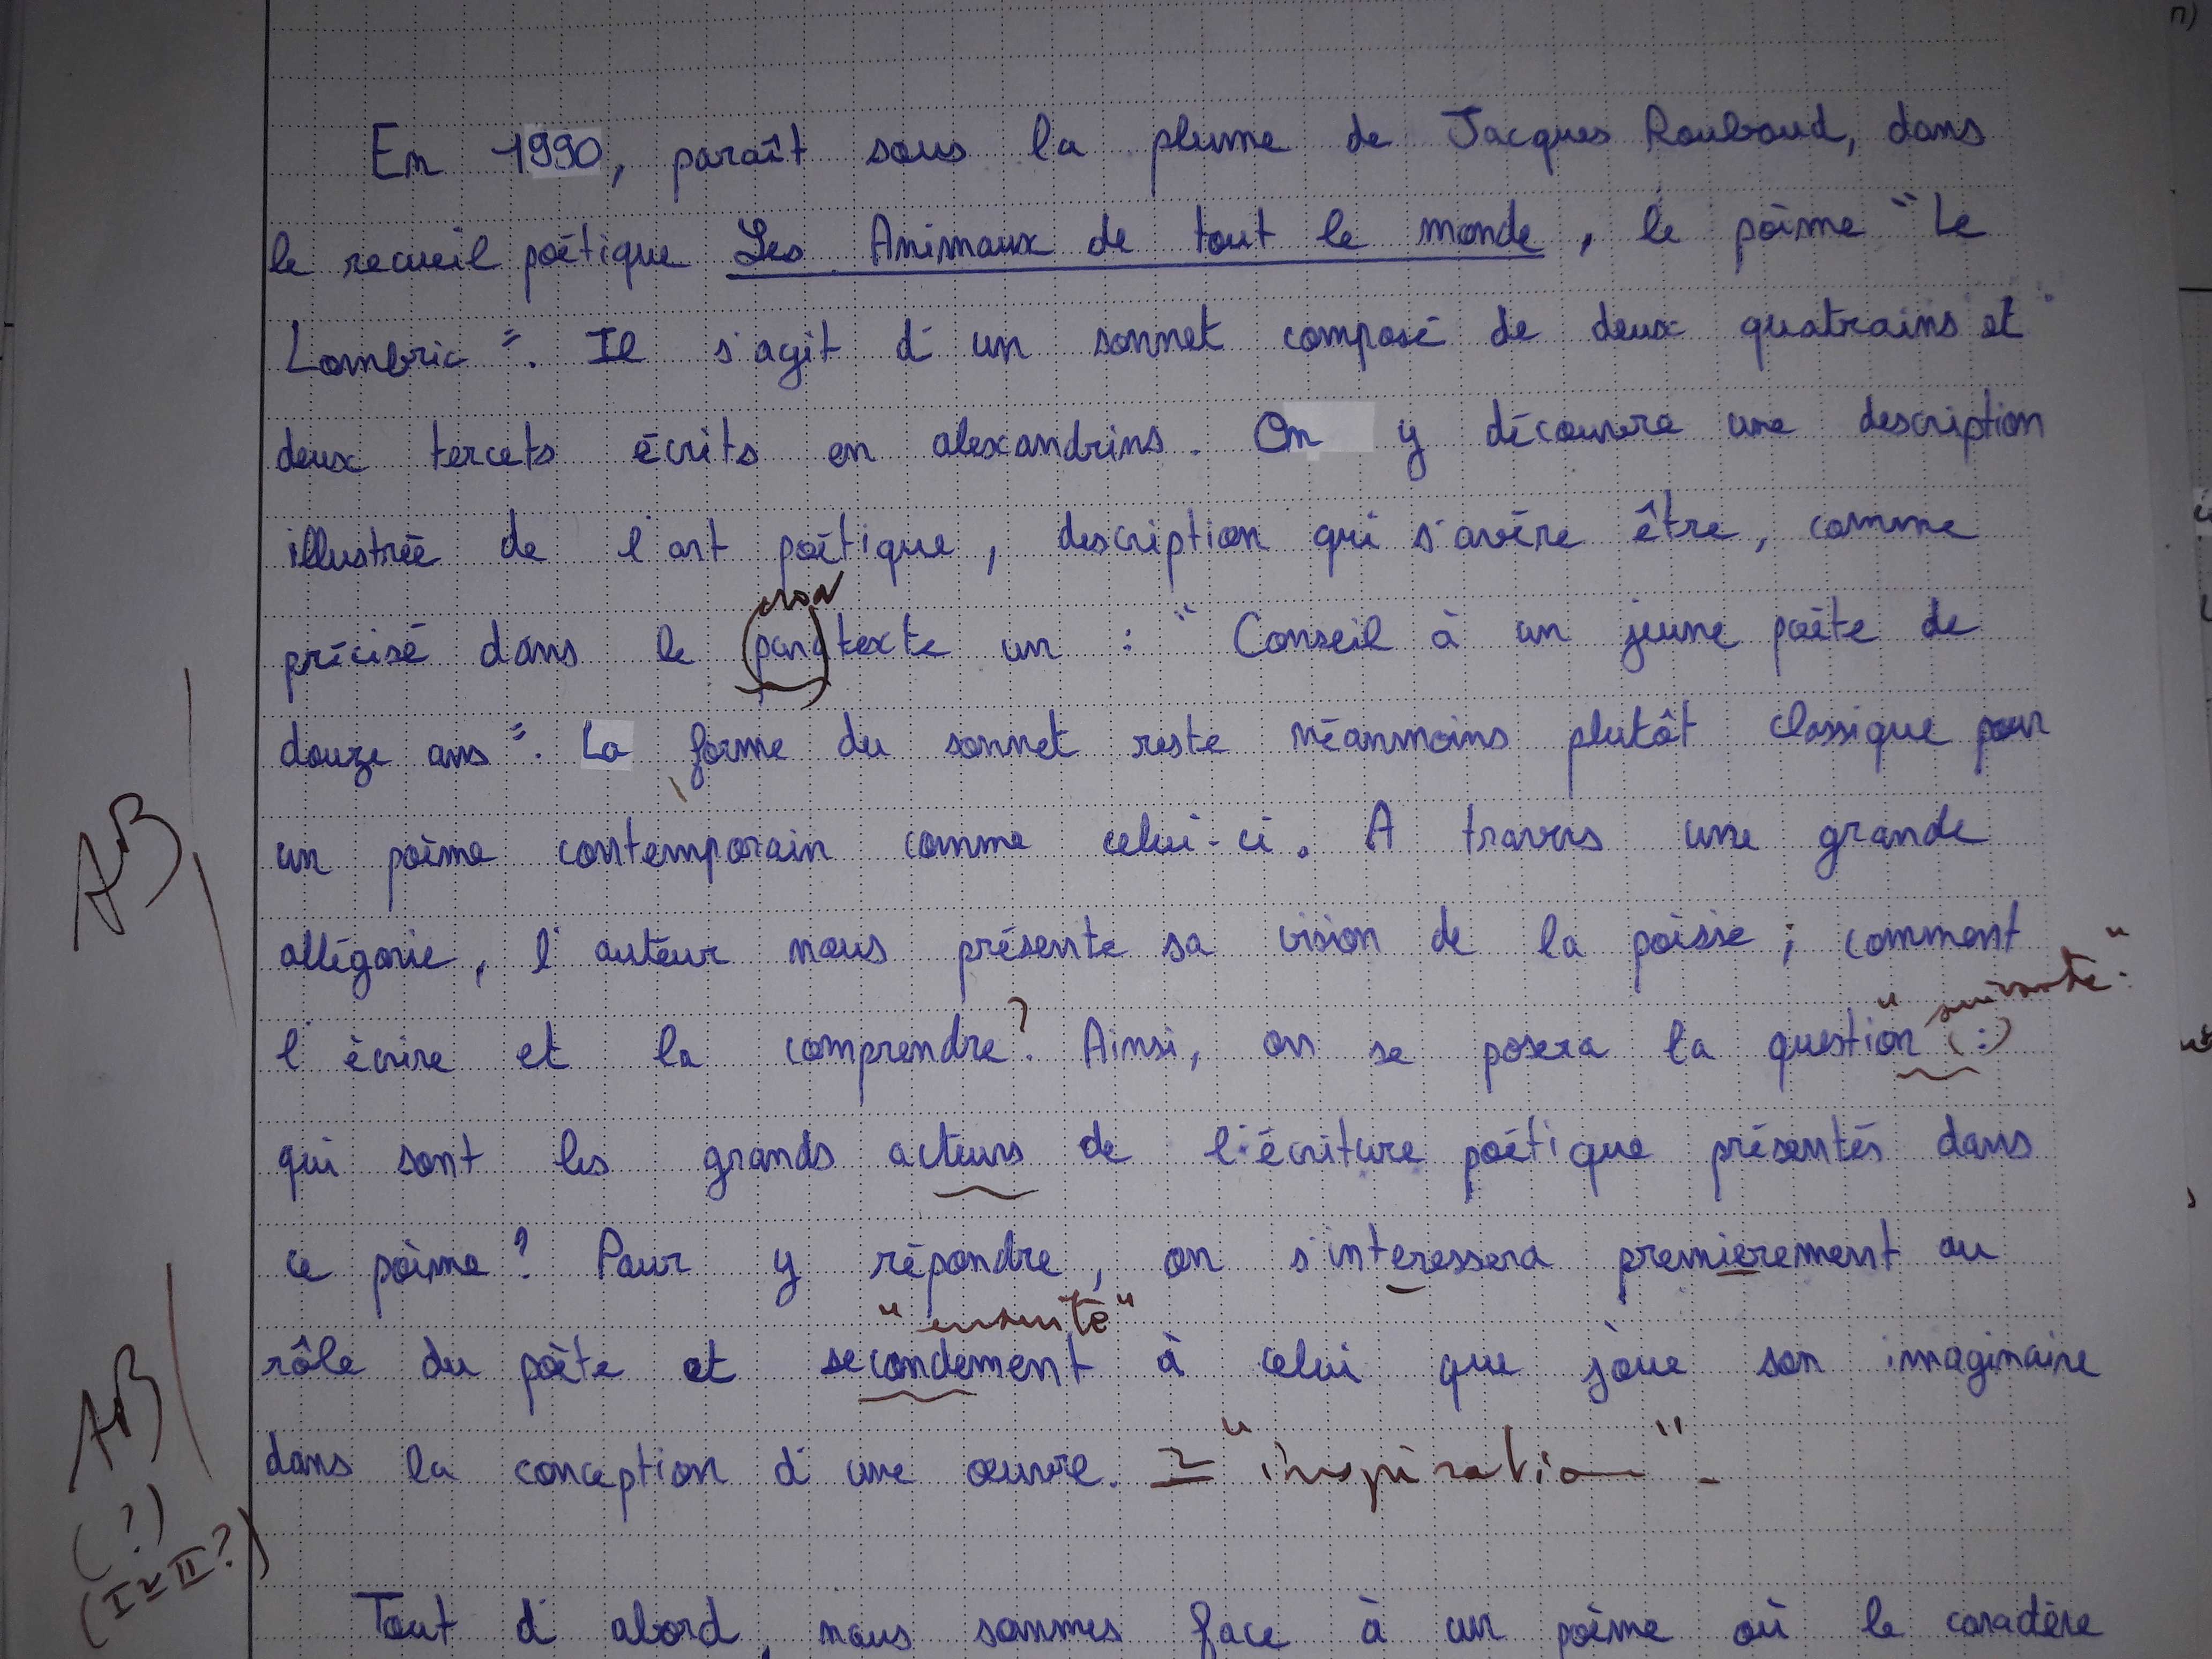 En 1990, paraît sous la plume de Jacques Roubaud, dans
le recueil poétique Les Animaux de tout le monde, le poème "Le
Lombric". Il s'agit d'un sonnet composé de deux quatrains et
deux tercets écrits en alexandrins. On y découvre une description
illustrée de l'art poétique, description qui s'avère être, comme
précisé dans le paratexte un : "Conseil à un jeune poète de
douze ans". La forme du sonnet reste néanmoins plutôt classique pour
un poème contemporain comme celui-ci. A travers une grande
AB
allégorie, l'auteur nous présente sa vision de la poésie ; comment
"suivante"
l'écrire et la comprendre ? Ainsi, on se posera la question (:)
qui sont les grands acteurs de l'écriture poétique présentés dans
ce poème ? Pour y répondre, on s'interessera premierement au
"ensuite"
rôle du poète et secondement à celui que joue son imaginaire
AB
dans la conception d'une œuvre. = "inspiration".
(?)
(I ≃ II ?)
Tout d'abord, nous sommes face à un poème où le caractère